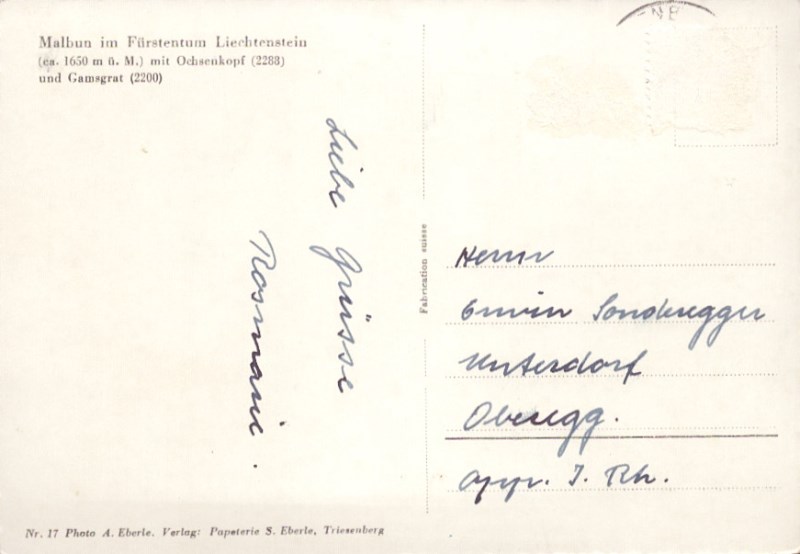 Malbun im Fürstentum Liechtenstein
(ca. 1650 m ü. M.) mit Ochsenkopf (2288)
und Gamsgrat (2200)
Liebe Grüsse
Rosmarie.
Fabrication suisse
Herrn
Erwin Sonderegger
Unterdorf
Oberegg.
App. I. Rh.
Nr. 17 Photo A. Eberle. Verlag: Papeterie S. Eberle, Triesenberg